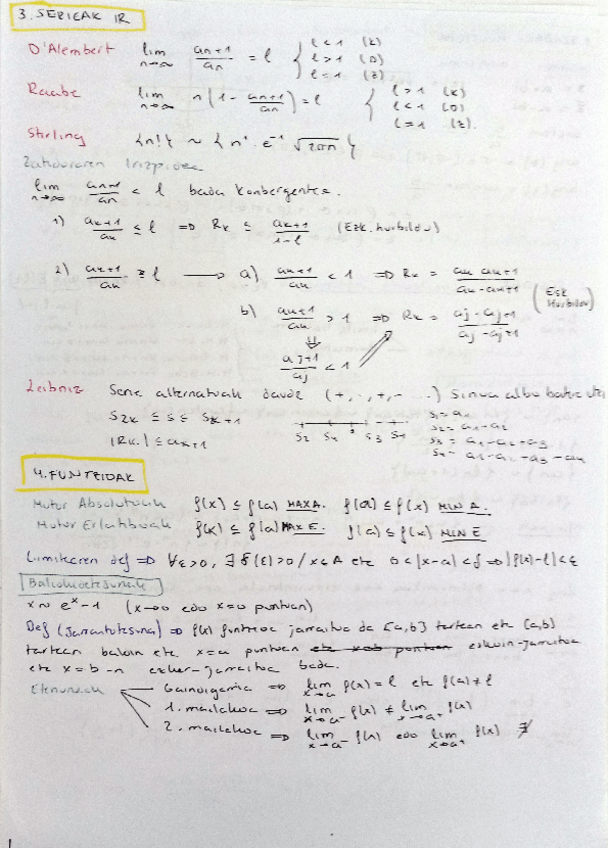 3. SERIEAK IR
D'Alembert lim n→∞ an+1/an = l { l < 1 (K) l > 1 (D) l = 1 (Z)
Raabe lim n→∞ n(1 - an+1/an) = l { l > 1 (K) l < 1 (D) l = 1 (Z).
Stirling {n!} ~ { nⁿ · e⁻ⁿ √2πn }
Zatiduraren Irizpidea
lim n→∞ an+1/an < 1 bada konbergentea.
1) ak+1/ak ≤ l ⇒ Rk ≤ ak+1/1-l (Esk. hurbildu)
2) ak+1/ak ≥ l → a) ak+1/ak < 1 ⇒ Rk = ak·ak+1/ak-ak+1 (Esk Hurbildu)
b) ak+1/ak > 1 ⇒ Rk = aj·aj+1/aj-aj+1
⇓
aj+1/aj < 1
Leibniz Serie alternatuak daude (+,-,+,- ...)
S2k ≤ S ≤ S2k+1 S2 S4 S S3 S1 S1 = a1
|Rk| ≤ ak+1 S2 = a1-a2
S3 = a1-a2+a3
S4 = a1-a2+a3-a4
4. FUNTZIOAK
Mutur Absolutuak f(x) ≤ f(a) MAX A. f(a) ≤ f(x) MIN A.
Mutur Erlatiboak f(x) ≤ f(a) MAX E. f(a) ≤ f(x) MIN E
Limitearen def ⇒ ∀ε>0, ∃ δ(ε)>0 / x∈A eta 0<|x-a|<δ ⇒ |f(x)-l|<ε
Baliokidetasunak
x ~ eˣ-1 (x→0 edo x=0 puntuan)
Def (Jarraitutasuna) ⇒ f(x) funtzioa jarraitua da [a,b] tartean eta (a,b)
tartean badira eta x=a puntuan eskuin-jarraitua
eta x=b-n ezker-jarraitua bada.
Etenuneak Gaindigarria ⇒ lim x→a f(x) = l eta f(a) ≠ l
1. mailakoa ⇒ lim x→a⁻ f(x) ≠ lim x→a⁺ f(x)
2. mailakoa ⇒ lim x→a⁻ f(x) edo lim x→a⁺ f(x) ∄